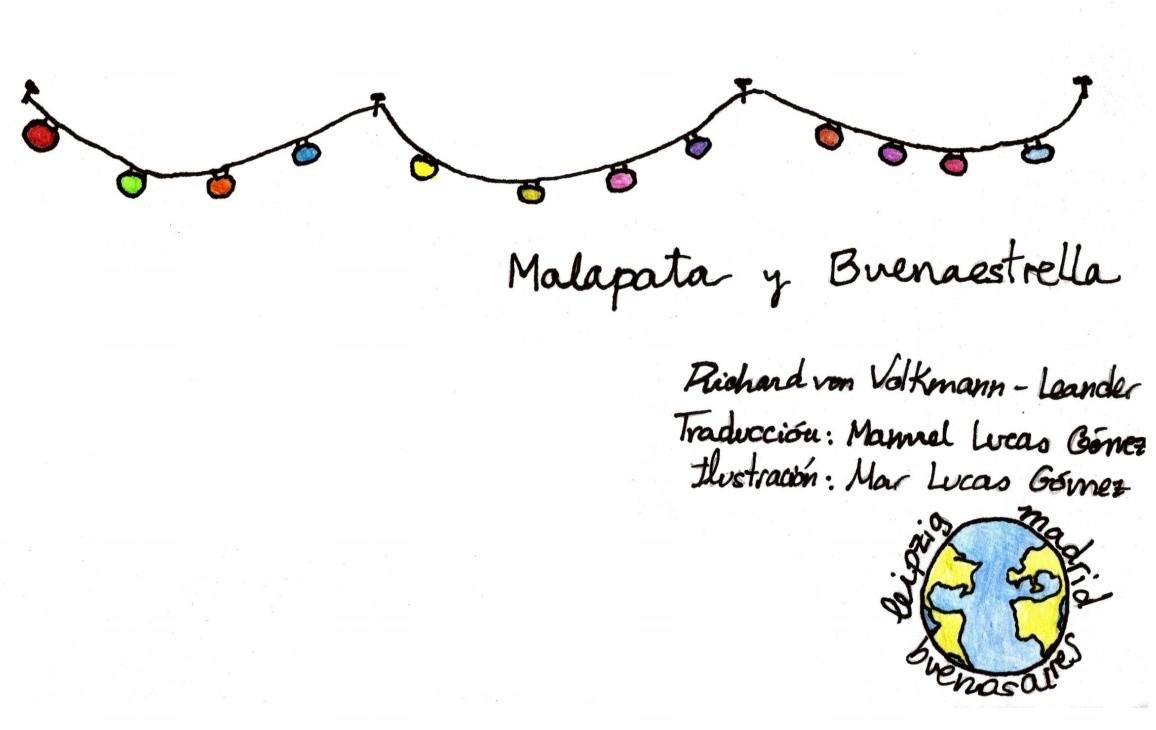 Malapata y Buenaestrella
Richard von Volkmann-Leander
Traducción: Manuel Lucas Gómez
Ilustración: Mar Lucas Gómez
leipzig
madrid
buenos aires